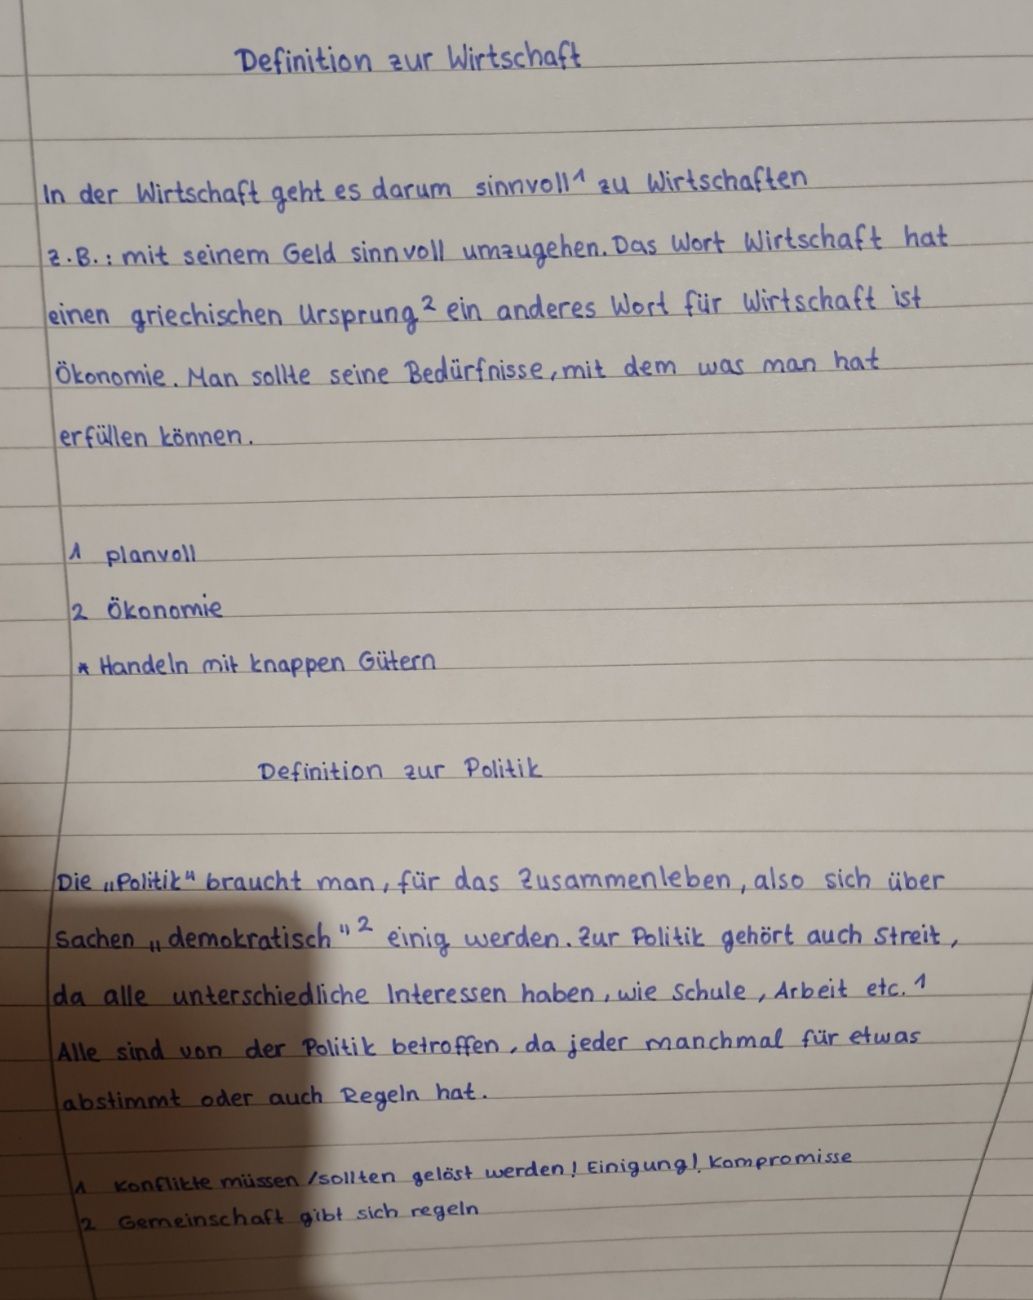 Definition zur Wirtschaft
In der Wirtschaft geht es darum sinnvoll¹ zu Wirtschaften
z.B.: mit seinem Geld sinnvoll umzugehen. Das Wort Wirtschaft hat
einen griechischen Ursprung² ein anderes Wort für Wirtschaft ist
Ökonomie. Man sollte seine Bedürfnisse, mit dem was man hat
erfüllen können.
1 planvoll
2 Ökonomie
* Handeln mit knappen Gütern
Definition zur Politik
Die „Politik“ braucht man, für das Zusammenleben, also sich über
Sachen „demokratisch“² einig werden. Zur Politik gehört auch Streit,
da alle unterschiedliche Interessen haben, wie Schule, Arbeit etc.¹
Alle sind von der Politik betroffen, da jeder manchmal für etwas
abstimmt oder auch Regeln hat.
1 Konflikte müssen /sollten gelöst werden! Einigung!, Kompromisse
2 Gemeinschaft gibt sich regeln